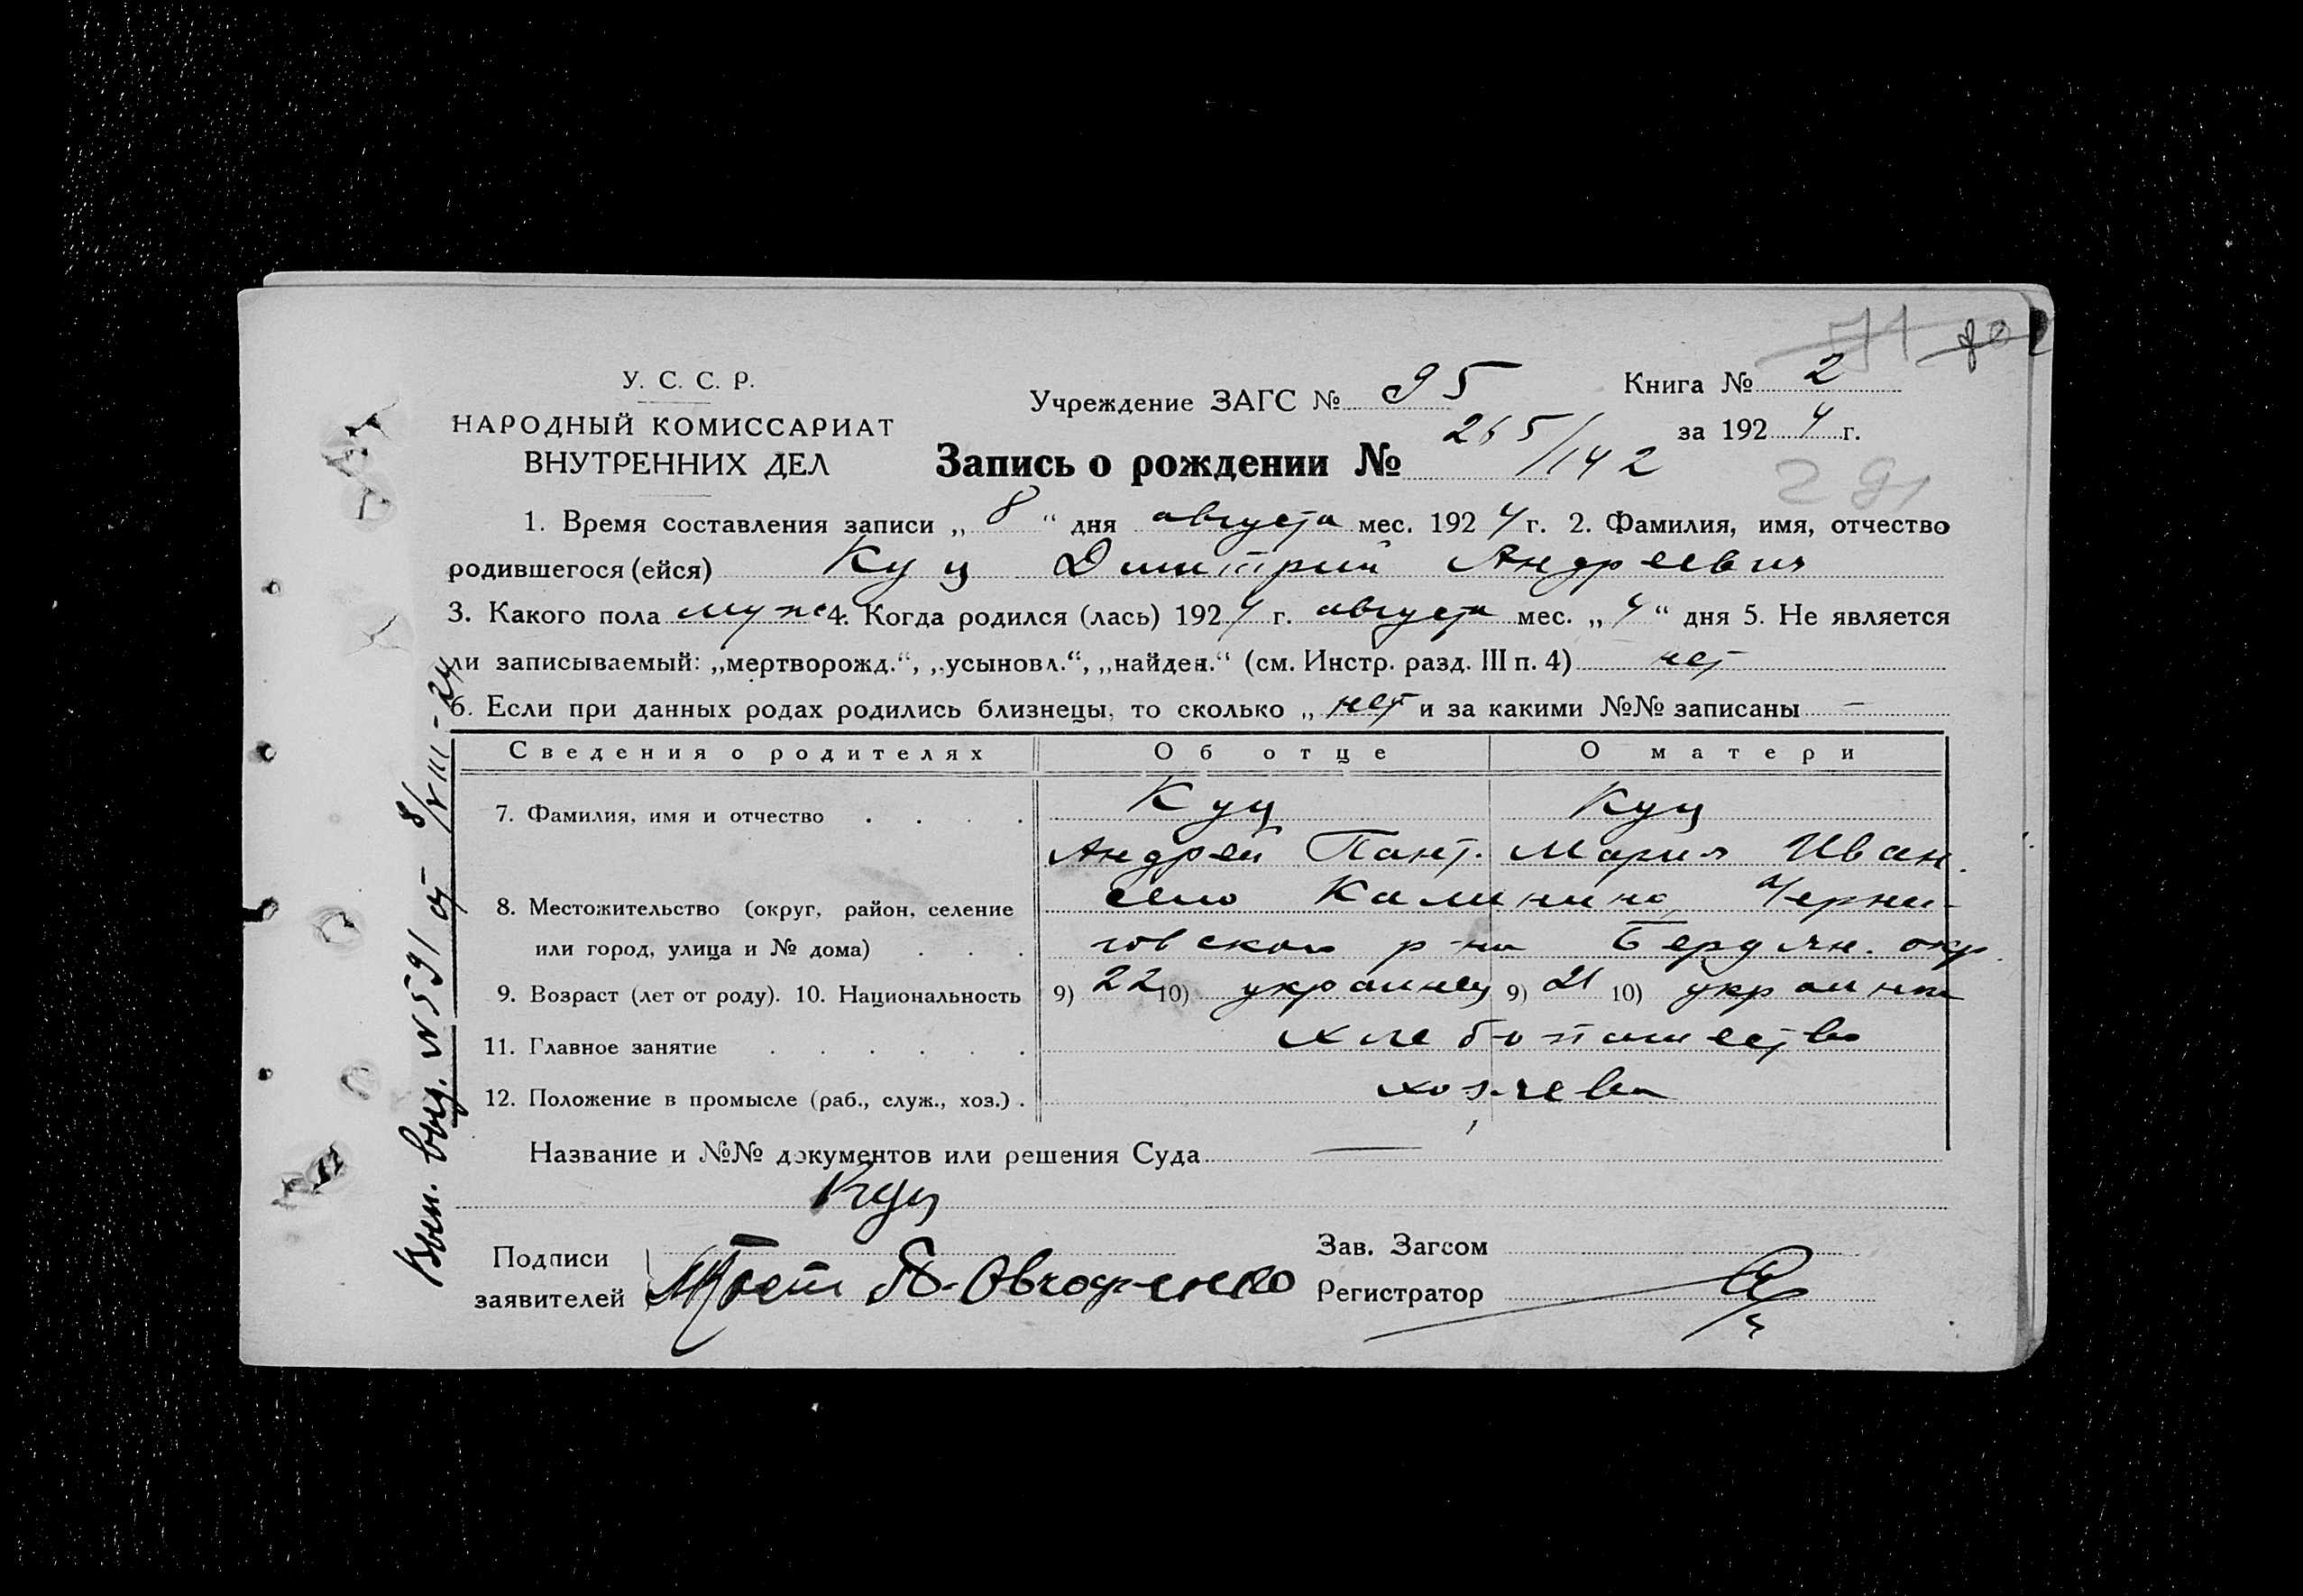 У. С. С. Р.
НАРОДНЫЙ КОМИССАРИАТ
ВНУТРЕННИХ ДЕЛ
Учреждение ЗАГС № 95
Книга № 2
за 1924 г.
Запись о рождении № 265/142
291
1. Время составления записи „ 8 “ дня августа мес. 1924 г. 2. Фамилия, имя, отчество
родившегося (ейся) Куц Дмитрий Андреевич
3. Какого пола муж 4. Когда родился (лась) 1924 г. августа мес. „ 4 “ дня 5. Не является
ли записываемый: „мертворожд.“, „усыновл.“, „найден.“ (см. Инстр. разд. III п. 4) нет
6. Если при данных родах родились близнецы, то сколько „ нет и за какими №№ записаны —
Сведения о родителях Об отце О матери
7. Фамилия, имя и отчество Куц Куц
Андрей Пант. Мария Иван.
8. Местожительство (округ, район, селение село Калинина Черни-
или город, улица и № дома) говского р-на Бердян. окр.
9. Возраст (лет от роду). 10. Национальность 9) 22 10) украинец 9) 21 10) украинка
11. Главное занятие хлебопашество
12. Положение в промысле (раб., служ., хоз.) хозяева
Название и №№ документов или решения Суда —
Куц
Подписи
заявителей Овчаренко
Зав. Загсом
Регистратор
Вып. выд. № 591 от 8/VIII-24